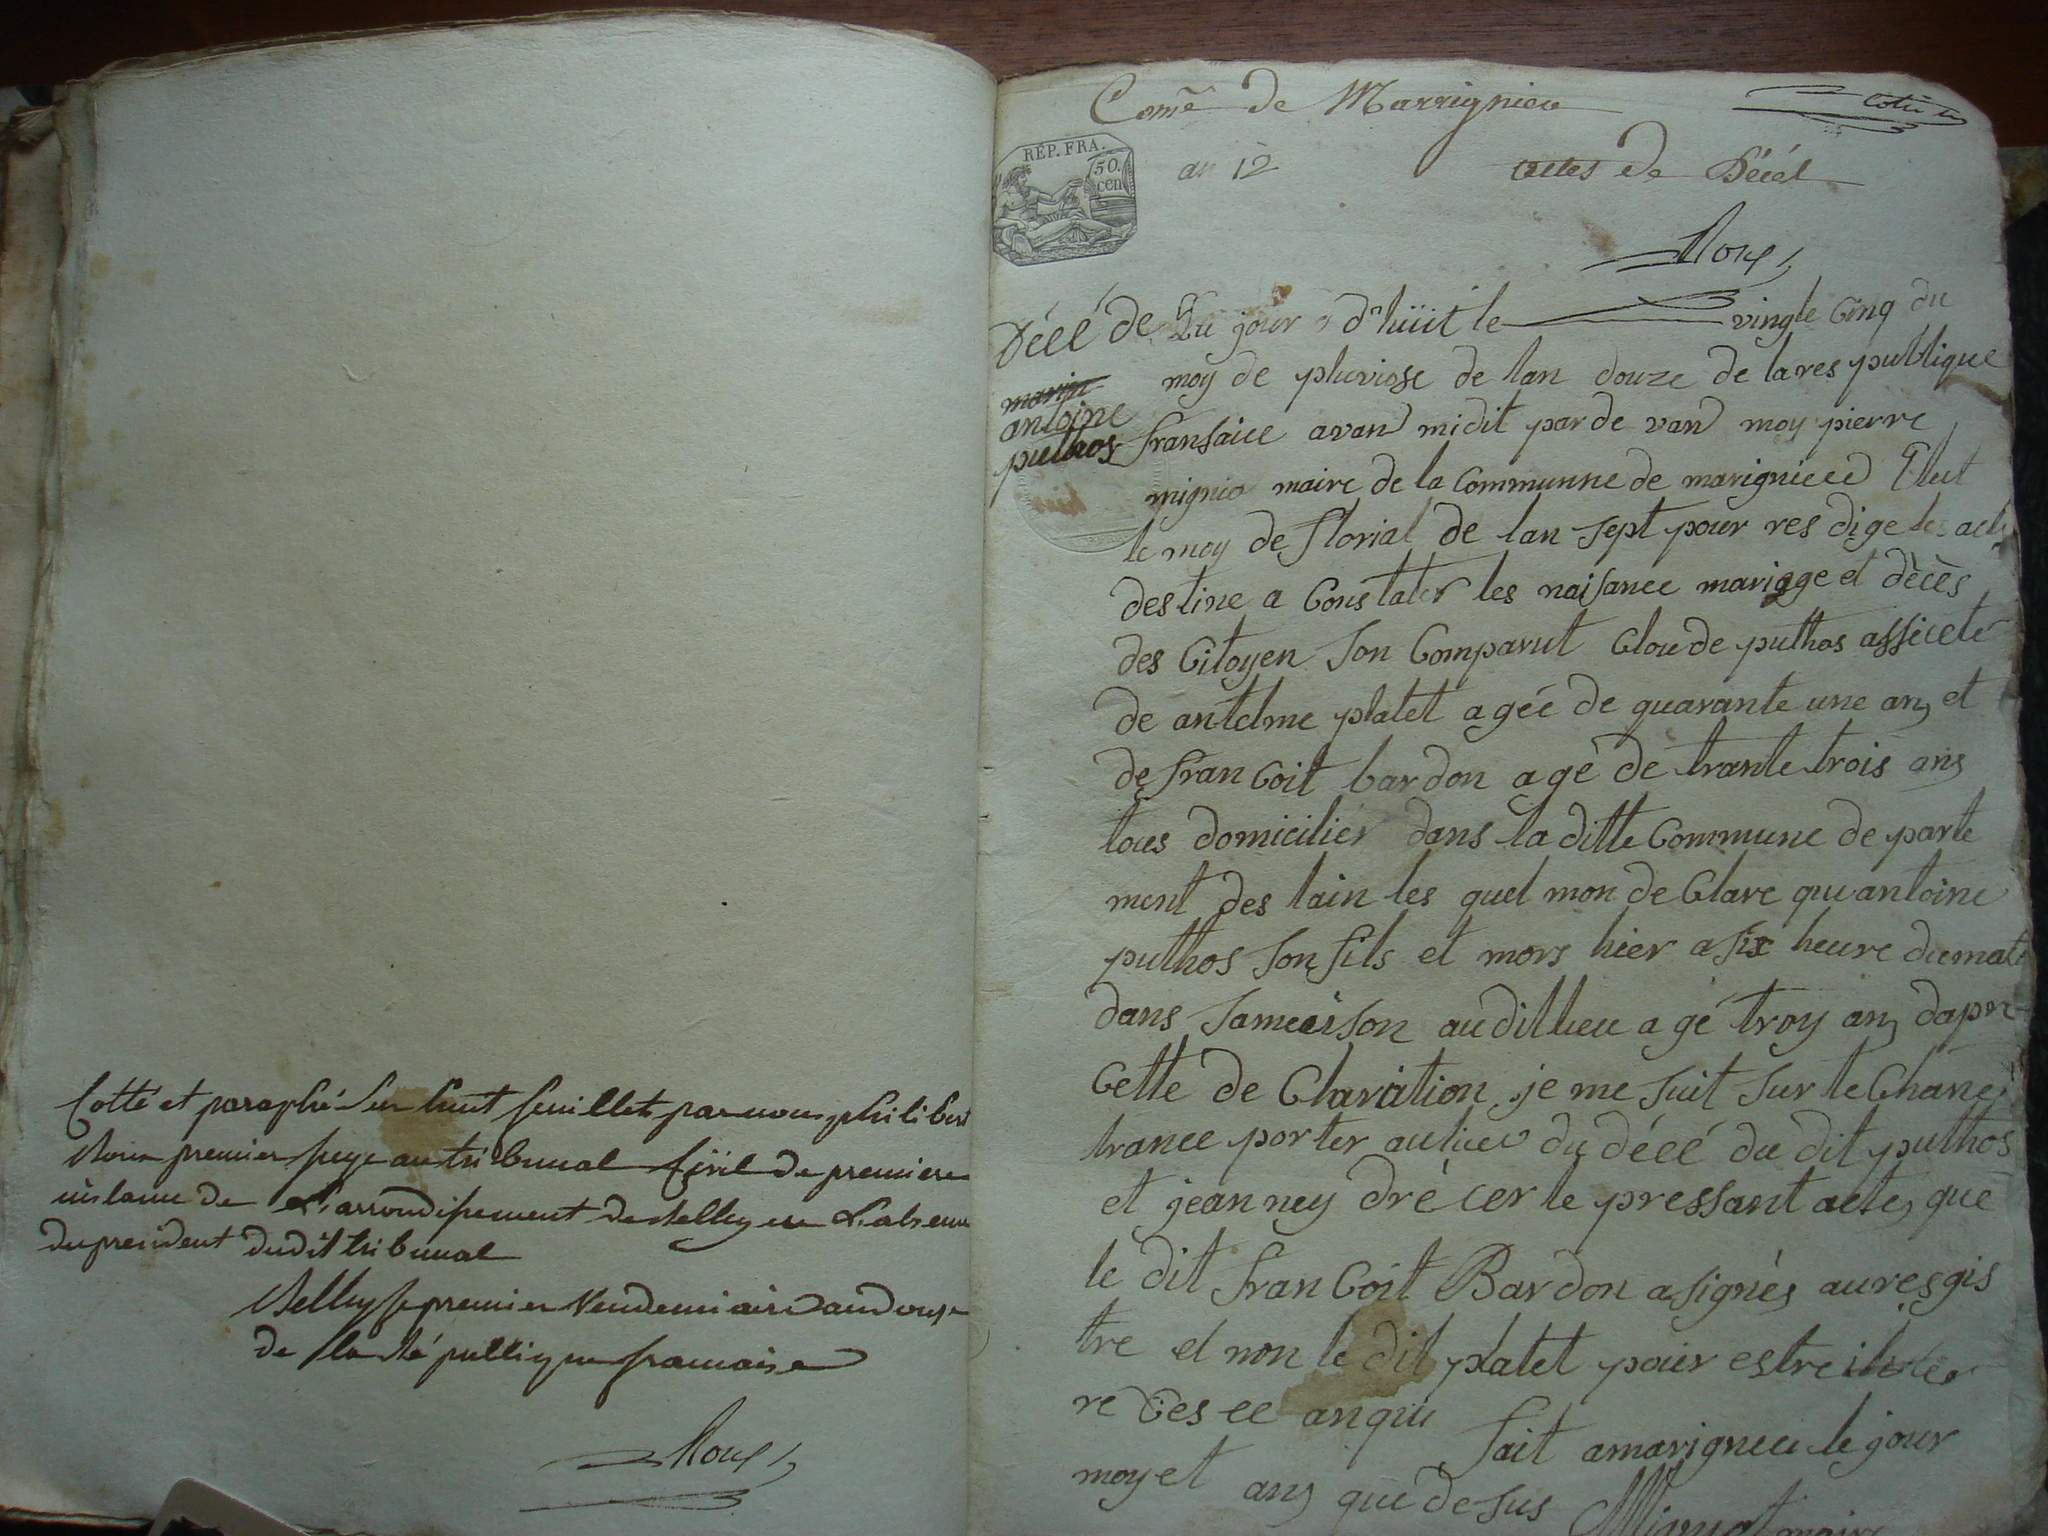 Cotté et paraphé sur huit feuillets par nous philibert
Roux premier juge au tribunal Civil de premiere
instance de L'arrondissement de Belley en L'absence
du president dudit tribunal
Belley le premier Vendemiaire an douze
de la Républiq française
Roux
Comẽ de Marrignieu
REP. FRA.
50.
cen
an 12
actes de Décèt
Roux
Décé de
marin
antoine
puthos
au jour d'huiit le vingte Cinq du
moy de pluviose de lan douze de la res publique
fransaice avan midit par de van moy pierre
mignio maire de la Communne de marignieed Elut
le moy de florial de lan sept pour res dige les acte
destine a Constater les naisance mariage et dècès
des Citoyen Son Comparut Cloude puthos assicete
de antelme platet agée de quarante une ans et
de fran Coit bardon age de trante trois ans
tous domicilier dans la ditte Commune de parte
ment des lain les quel mon de Clare qu antoine
puthos Son fils et mors hier a six heure du mati
dans sa meison au dit lieu agé troy ans dapre
Cette de Claration je me suit sur le Chane
trance porter au lieu du décé du dit puthos
et jeanney drécer le pressant acte, que
le dit fran Coit Bardon a signès au resgis
tre et non le dit platet pour estre
re
an qui fait a marignieu le jour
moy et ans que de sus
Mignot maire